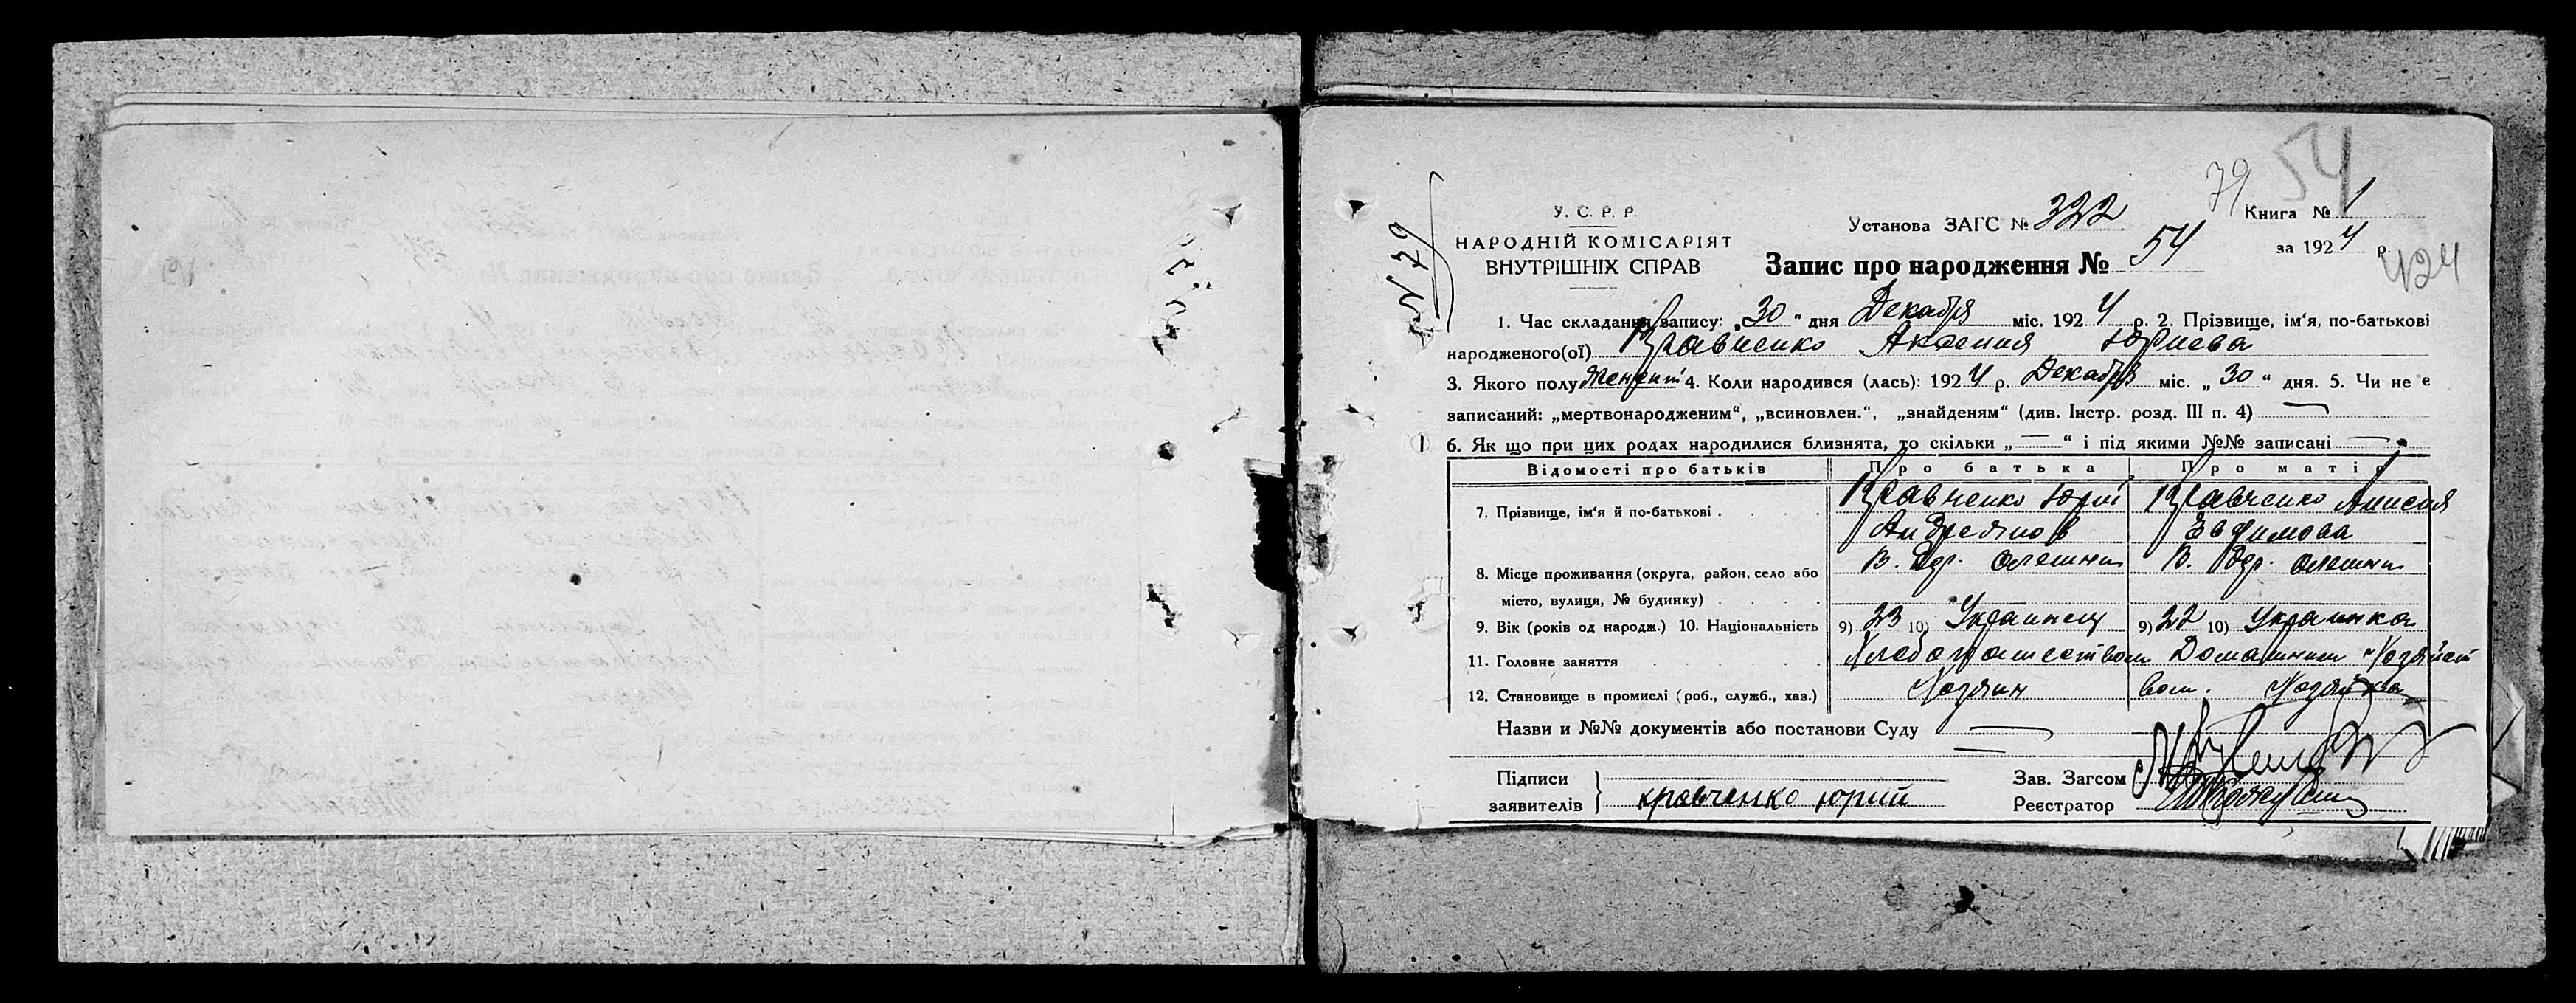 54
79
У. С. Р. Р.
НАРОДНІЙ КОМІСАРІЯТ
ВНУТРІШНІХ СПРАВ
Установа ЗАГС № 322
Книга № 1
за 1924 р.
Запис про народження № 54
424
№ 79
1. Час складання запису: „30“ дня Декабря міс. 1924 р. 2. Прізвище, ім‘я, по-батькові
народженого(ої) Кравченко Аксения Юриева
3. Якого полу женск 4. Коли народився (лась): 1924 р. Декабря міс. „30“ дня. 5. Чи не є
записаний: „мертвонародженим“, „всиновлен.“, „знайденям“ (див. Інстр. розд. III п. 4) —
6. Як що при цих родах народилися близнята, то скільки „—“ і під якими №№ записані —
Відомості про батьків Про батька Про матір
7. Прізвище, ім‘я й по-батькові . . . . Кравченко Юрий Кравченко Анисия
Андреянов Евфимова
8. Місце проживання (округа, район, село або В. Олешни В. Олешни
місто, вулиця, № будинку) . . . .
9. Вік (років од народж.) 10. Національність 9) 23 10) Украинец 9) 22 10) Украинка
11. Головне заняття . . . . Хлебопашеством Домашним Хозяйст
12. Становище в промислі (роб., служб., хаз.) Хозяин вом. Хозяйка
Назви и №№ документів або постанови Суду —
Підписи
заявителів } кравченко юрий
Зав. Загсом
Реєстратор